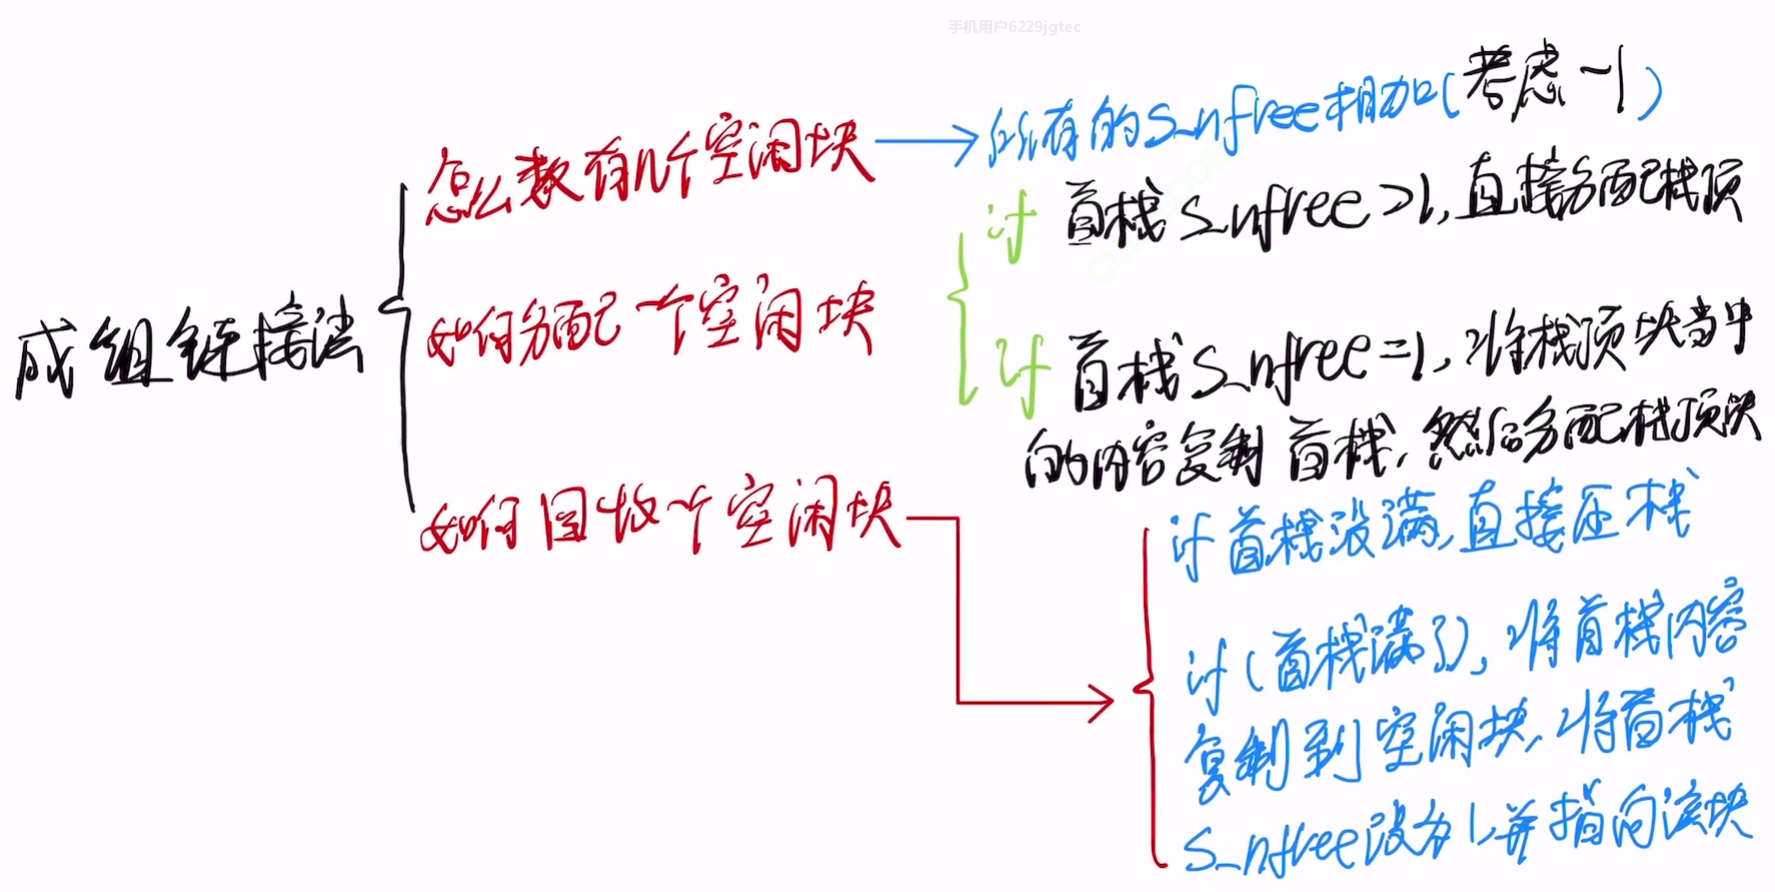 手机用户6229jgtec
成组链接法
怎么数有几个空闲块
所有的s_nfree相加(考虑-1)
如何分配一个空闲块
if 首栈s_nfree>1,直接分配栈顶
if 首栈s_nfree=1,将栈顶块当中
的内容复制首栈,然后分配栈顶块
如何回收个空闲块
if首栈没满,直接压栈
if(首栈满了),将首栈内容
复制到空闲块,将首栈
s_nfree设为1,并指向该块